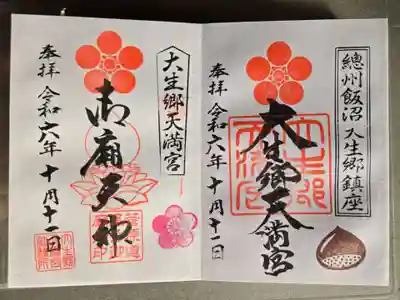 總州飯沼 大生郷鎮座
奉拝
大生郷天満宮
令和六年十月十一日
大生郷天満宮
奉拝
御廟天神
令和六年十月十一日